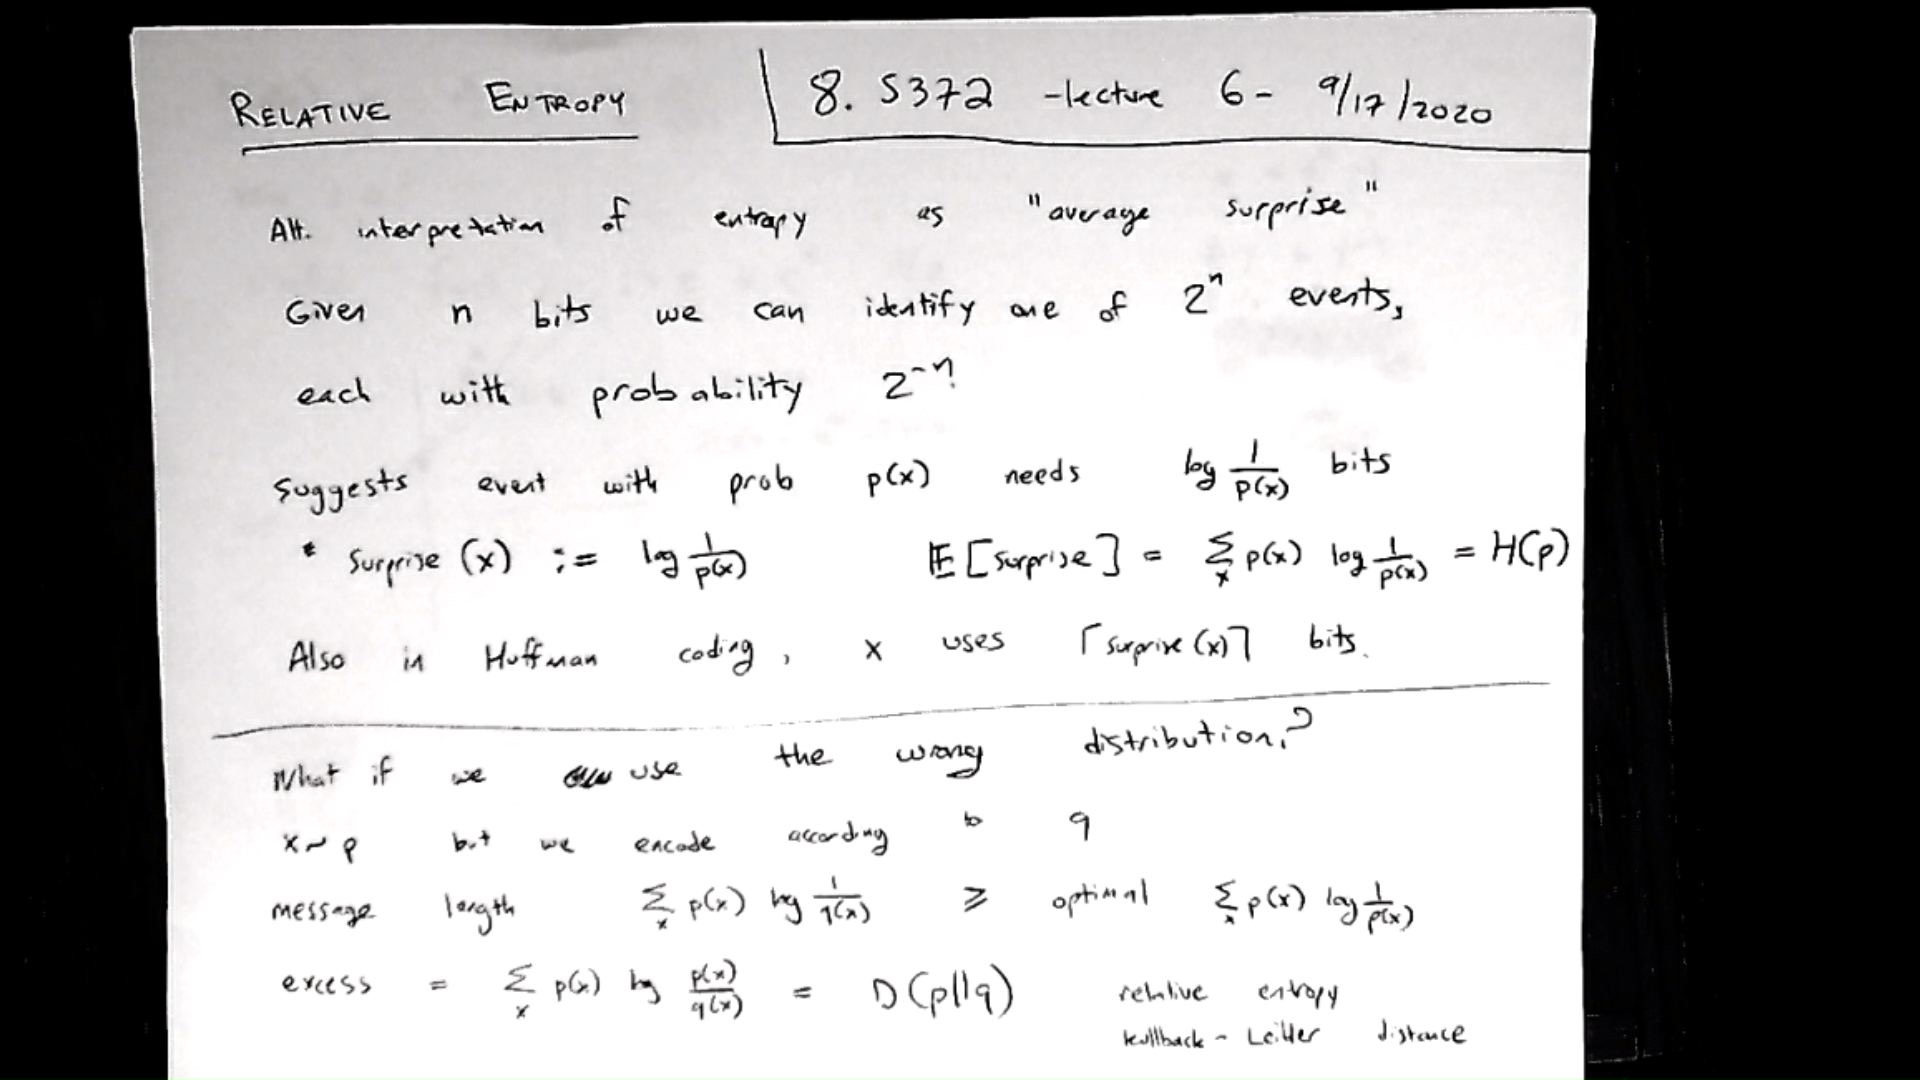 RELATIVE ENTROPY
8. S372 - lecture 6 - 9/17/2020
Alt. interpretation of entropy as "average surprise"
Given n bits we can identify one of 2^n events,
each with probability 2^-n.
Suggests event with prob p(x) needs log 1/p(x) bits
* Surprise (x) := log 1/p(x) 𝔼[surprise] = Σ_x p(x) log 1/p(x) = H(p)
Also in Huffman coding, x uses ⌈surprise (x)⌉ bits.
What if we use the wrong distribution?
x ~ p but we encode according to q
message length Σ_x p(x) log 1/q(x) ≥ optimal Σ_x p(x) log 1/p(x)
excess = Σ_x p(x) log p(x)/q(x) = D(p||q) relative entropy
kullback - Leibler distance